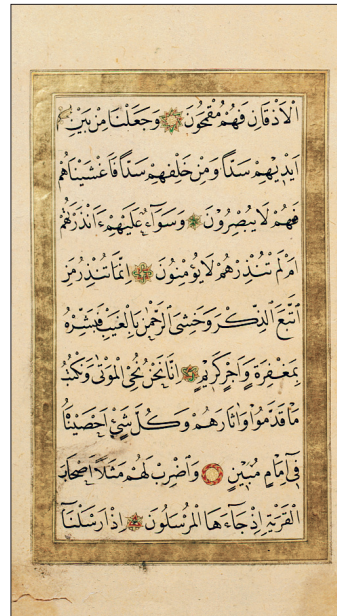 الْاَذْقَانِ فَهُمْ مُقْمَحُونَ وَجَعَلْنَا مِنْ بَيْنِ
اَيْدِيهِمْ سَدًّا وَمِنْ خَلْفِهِمْ سَدًّا فَاَغْشَيْنَاهُمْ
فَهُمْ لَا يُبْصِرُونَ وَسَوَآءٌ عَلَيْهِمْ ءَاَنْذَرْتَهُمْ
اَمْ لَمْ تُنْذِرْهُمْ لَا يُؤْمِنُونَ اِنَّمَا تُنْذِرُ مَنِ
اتَّبَعَ الذِّكْرَ وَخَشِىَ الرَّحْمٰنَ بِالْغَيْبِ فَبَشِّرْهُ
بِمَغْفِرَةٍ وَاَجْرٍ كَرِيمٍ اِنَّا نَحْنُ نُحْىِ الْمَوْتٰى وَنَكْتُبُ
مَا قَدَّمُوا وَاٰثَارَهُمْ وَكُلَّ شَىْءٍ اَحْصَيْنَاهُ
فِٓى اِمَامٍ مُبِينٍ وَاضْرِبْ لَهُمْ مَثَلًا اَصْحَابَ
الْقَرْيَةِ اِذْ جَآءَهَا الْمُرْسَلُونَ اِذْ اَرْسَلْنَآ